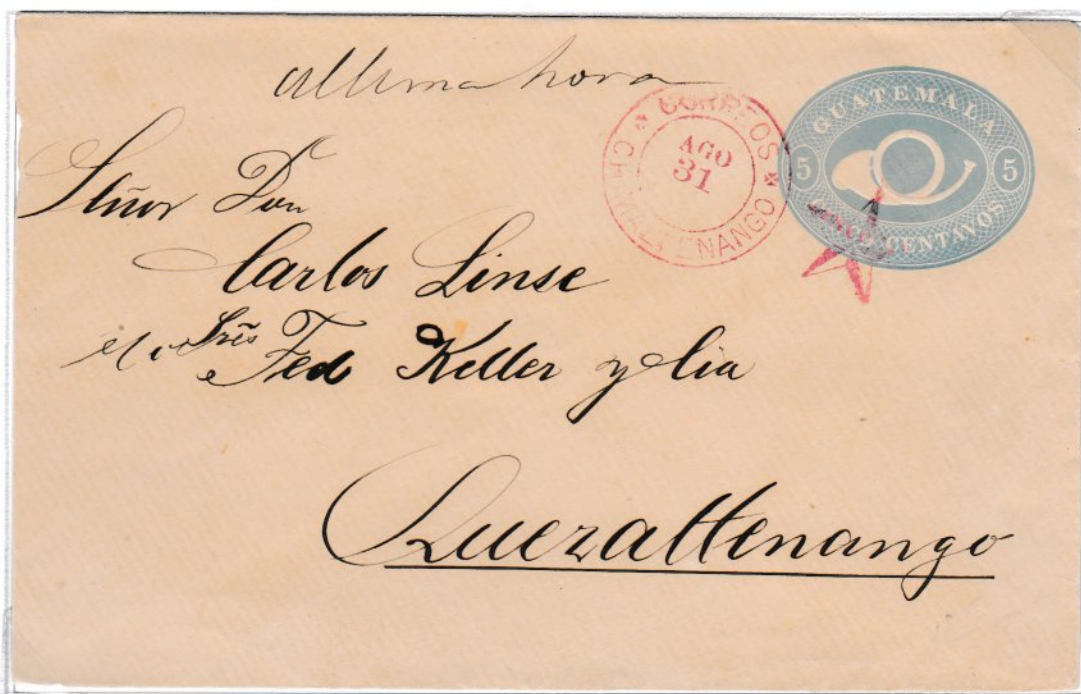 Ultima hora
CORREOS
AGO
31
GUATEMALA
5 5
CINCO CENTAVOS
Señor Don
Carlos Linse
Sres Fed Keller y Cia
Quezaltenango